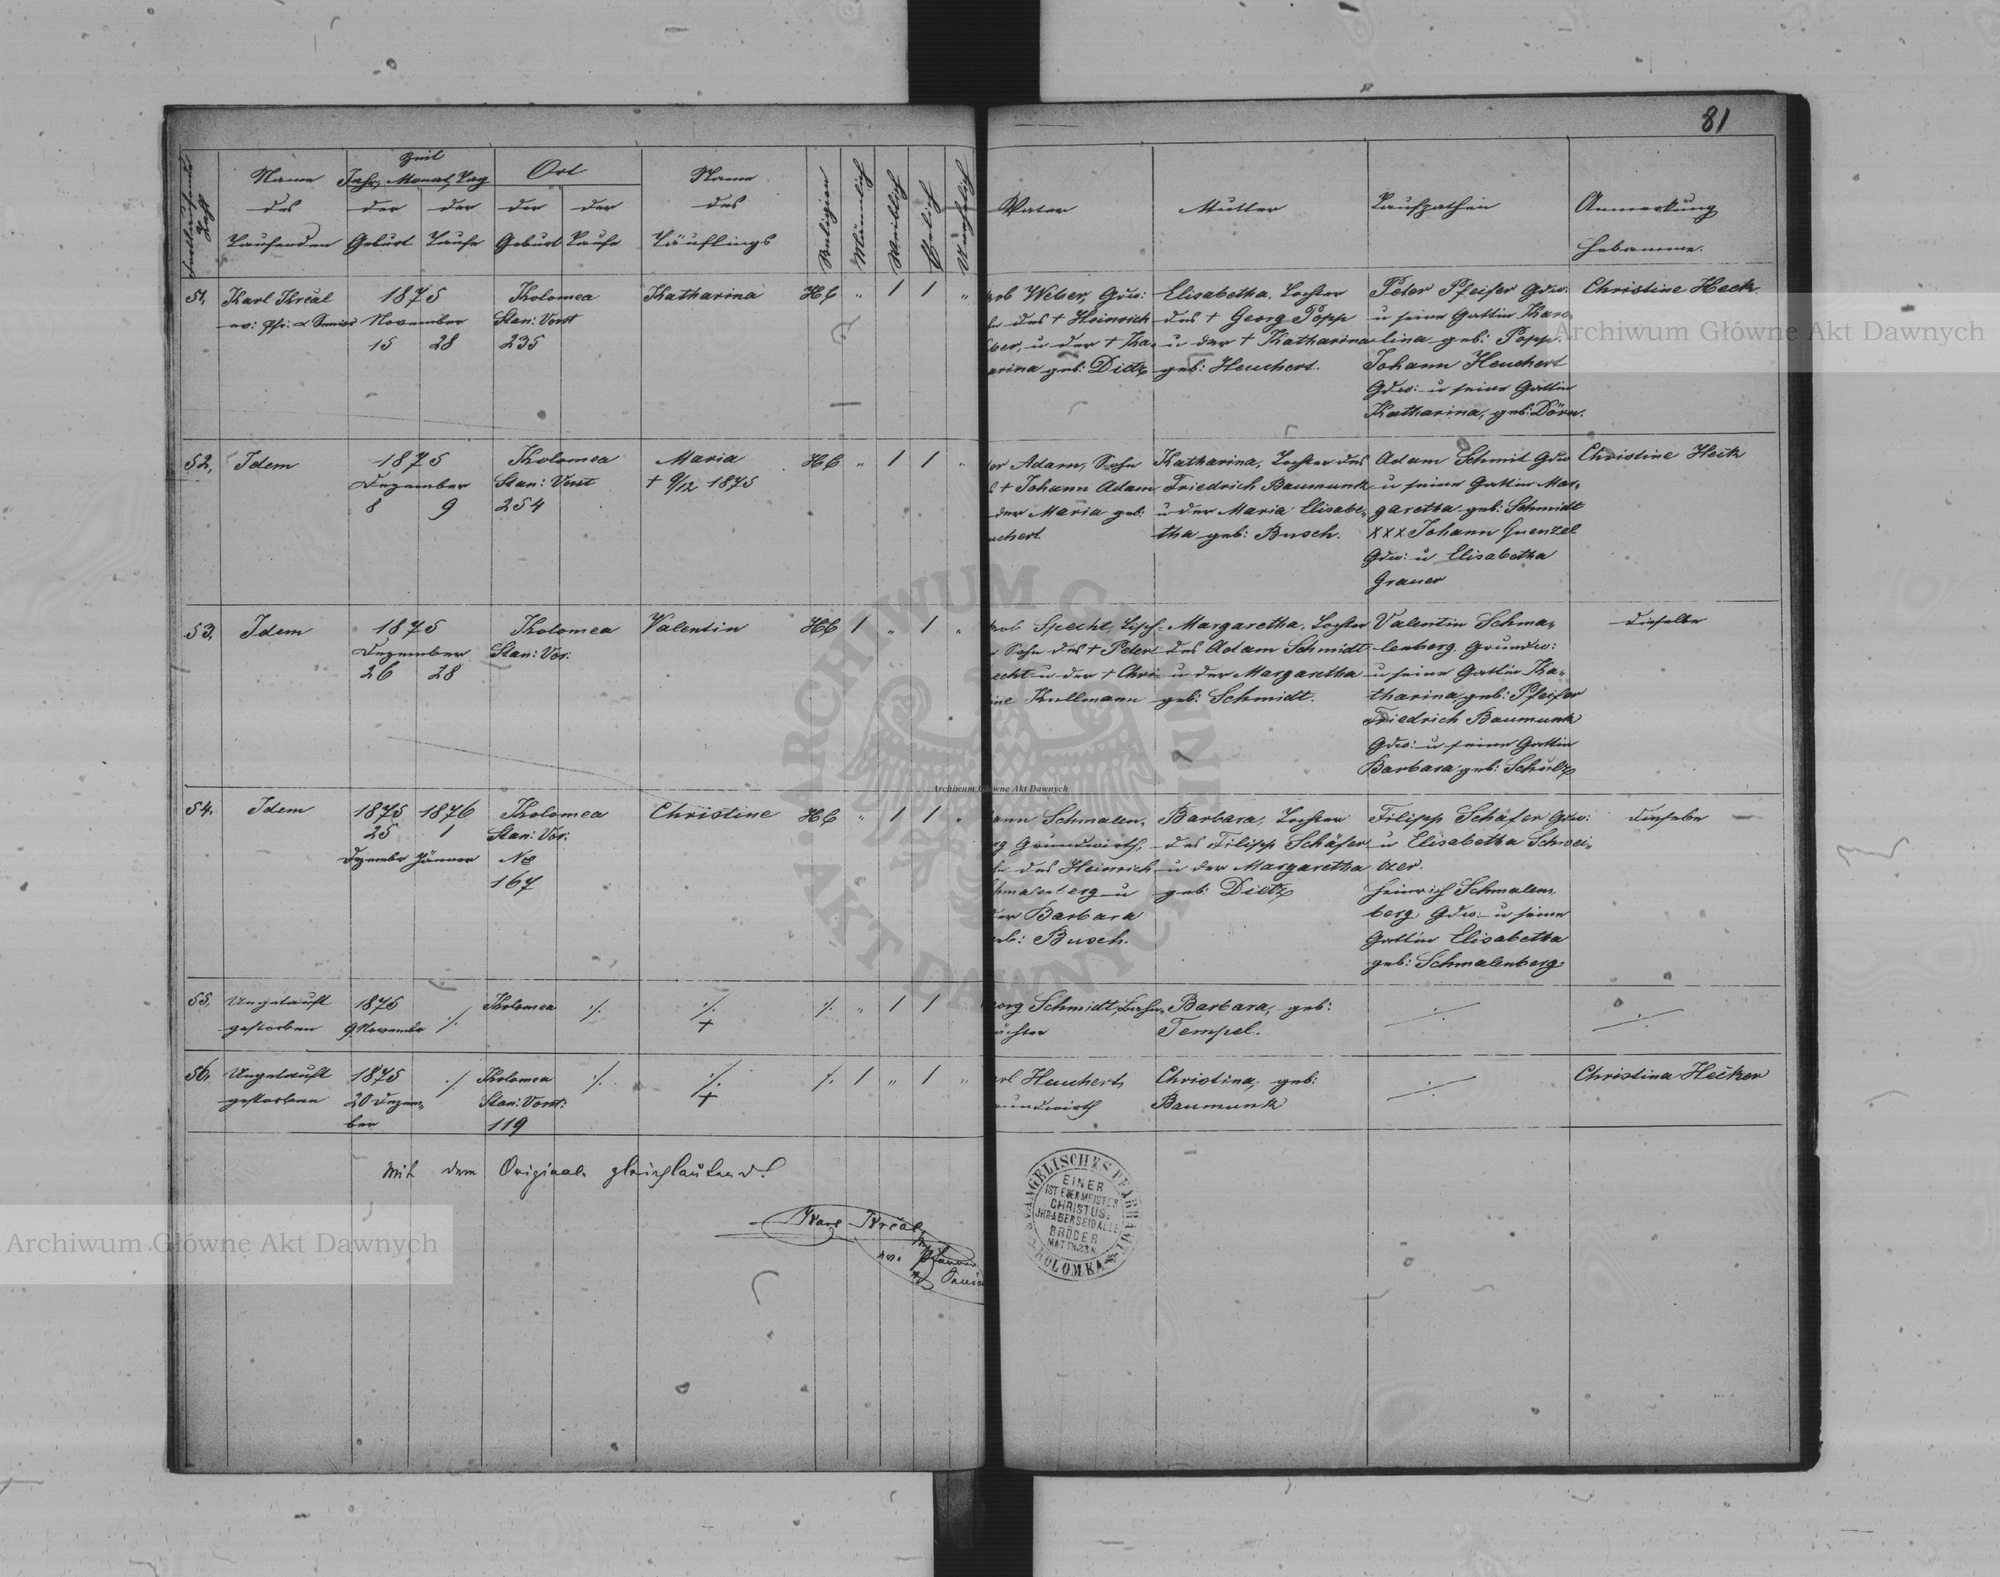 81
Fortlaufende Zahl
Name des Taufenden
Zeit
Jahr, Monat, Tag
der Geburt
der Taufe
Ort
der Geburt
der Taufe
Name des Täuflings
Religion
Männlich
Weiblich
Ehelich
Unehelich
Vater
Mutter
Taufpathen
Anmerkung
Hebamme.
51. Karl Krcal 1875 Kolomea Katharina HC " 1 1 "
ev: Pfr: & Senior November Stan: Vorst
15 28 235
kob Weber, Gdw:
des + Heinrich
ber, u der + Ka-
arina geb: Dietz
Elisabetha, Tochter
des + Georg Popp
u der + Katharina
geb: Heuchert.
Peter Pfeifer Gdw:
u seine Gattin Karo-
lina geb: Popp.
Johann Heuchert
Gdw: u seine Gattin
Katharina, geb: Dörn.
Christine Heck.
52. Idem 1875 Kolomea Maria HC " 1 1 "
Dezember Stan: Vorst + 9/12 1875
8 9 254
Adam, Sohn
+ Johann Adam
der Maria geb:
uchert
Katharina, Tochter des
Friedrich Baumunk
u der Maria Elisabe-
tha geb: Busch.
Adam Schmit Gdw
u seine Gattin Mar-
garetha geb: Schmidt
xxx Johann Guenzel
Gdw: u Elisabetha
Grauer
Christine Heck
53. Idem 1875 Kolomea Valentin HC 1 " 1 "
Dezember Stan: Vor:
26 28
kob Specht, Tisch-
r Sohn des + Peter
echt u der + Chri-
ine Kullmann
Margaretha, Tochter
des Adam Schmidt
u der Margaretha
geb: Schmidt.
Valentin Schma-
lenberg Grundw:
u seine Gattin Ka-
tharina, geb: Pfeifer
Friedrich Baumunk
Gdw: u seine Gattin
Barbara geb: Schultz
dieselbe
54. Idem 1875 1876 Kolomea Christine HC " 1 1 "
25 1 Stan: Vor:
Dezember Jänner No
167
ann Schmalen-
rg Grundwirth,
des Heinrich
hmalenberg u
der Barbara
geb: Busch.
Barbara, Tochter
des Filipp Schäfer
u der Margaretha
geb: Dietz
Filipp Schäfer Gdw:
u Elisabetha Schwei-
tzer.
Heinrich Schmalen-
berg, Gdw: u seine
Gattin Elisabetha
geb: Schmalenberg
dieselbe
55. Ungetauft 1875 Kolomea ./. ./. ./. " 1 1
gestorben 9 November ./. +
org Schmidt, Bahn-
wächter
Barbara, geb:
Tempel.
./.
./.
56. Ungetauft 1875 ./. Kolomea ./. ./. ./. 1 " 1 "
gestorben 20 Dezem- Stan: Vorst: +
ber 119
arl Heuchert,
rundwirth
Christina, geb:
Baumunk
./.
Christina Hecker
Mit dem Original gleichlautend!
Karl Krcal
ev. Pfarrer
Senior
EVANGELISCHES PFARRAMT
KOLOMEA
EINER
IST EUER MEISTER
CHRISTUS:
IHR ABER SEID ALLE
BRÜDER
MATTH. 23.8.
Archiwum Główne Akt Dawnych
Archiwum Główne Akt Dawnych
Archiwum Główne Akt Dawnych
ARCHIWUM GŁÓWNE AKT DAWNYCH